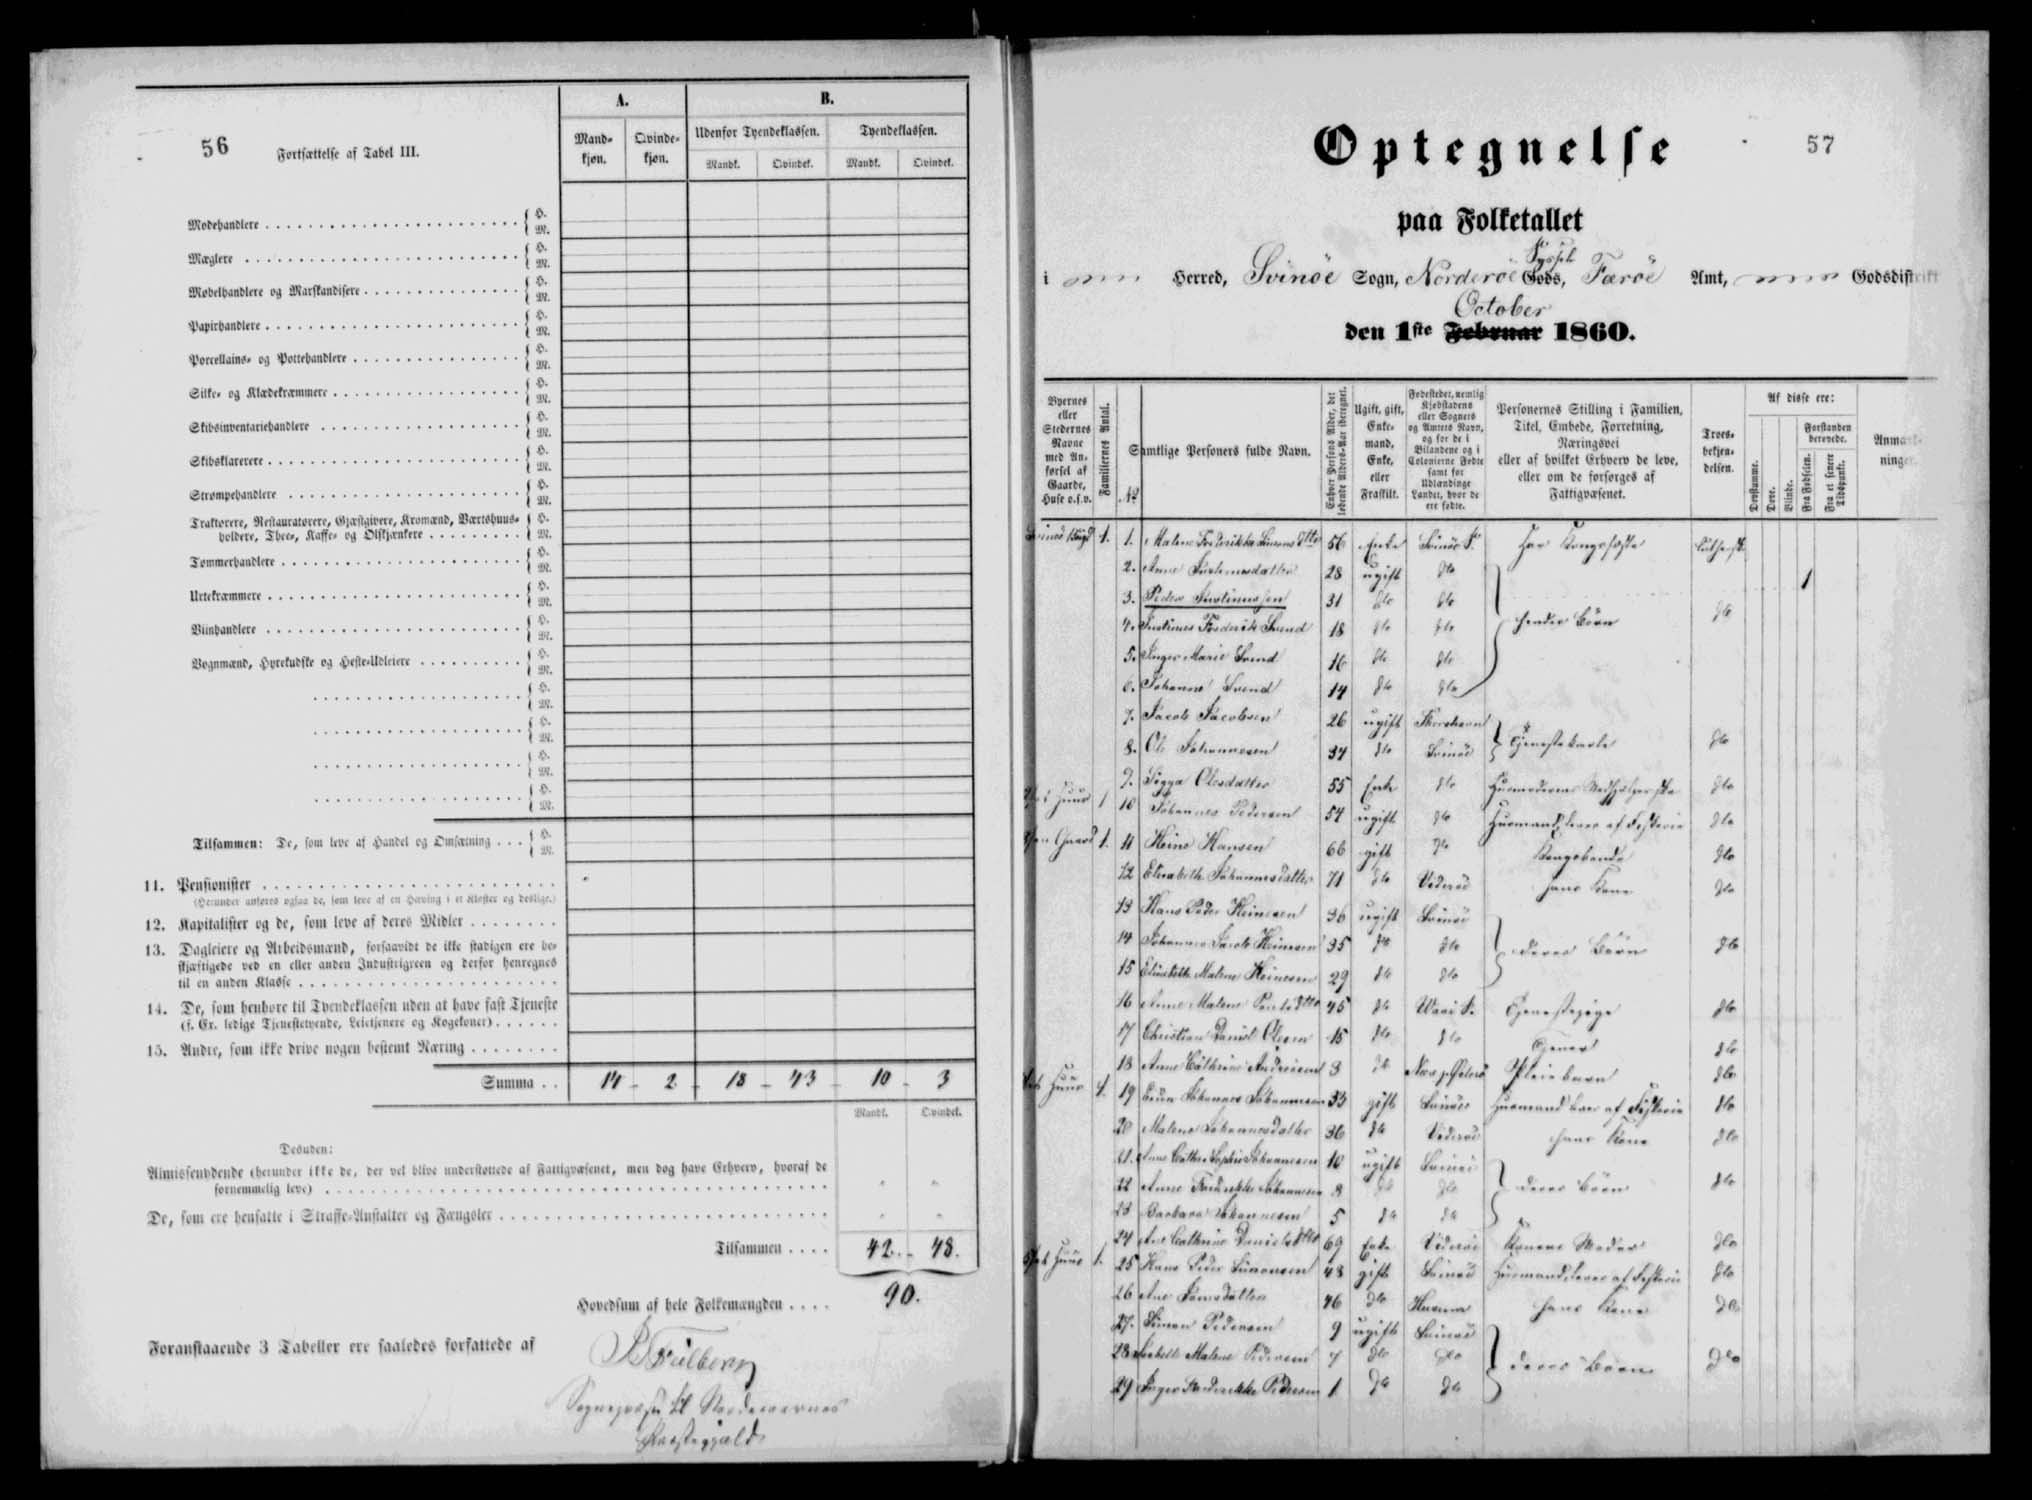 56
Fortsættelse af Tabel III.
A.
B.
Mand-
kjøn.
Qvinde-
kjøn.
Udenfor Tyendeklassen.
Tyendeklassen.
Mandk.
Qvindek.
Mandk.
Qvindek.
Modehandlere { H. M.
Mæglere { H. M.
Møbelhandlere og Marskandisere { H. M.
Papirhandlere { H. M.
Porcellains- og Pottehandlere { H. M.
Silke- og Klædekræmmere { H. M.
Skibsinventariehandlere { H. M.
Skibsklarerere { H. M.
Strømpehandlere { H. M.
Traktører, Restauratører, Gjæstgivere, Kromænd, Værtshuus-
holdere, Thee-, Kaffe- og Ølskjænkere { H. M.
Tømmerhandlere { H. M.
Urtekræmmere { H. M.
Viinhandlere { H. M.
Vognmænd, Hyrekudske og Heste-Udleiere { H. M.
{ H. M.
{ H. M.
{ H. M.
{ H. M.
Tilsammen: De, som leve af Handel og Omsætning { H. M.
11. Pensionister
(Herunder anføres ogsaa de, som leve af en Hævning i et Kloster og deslige.)
12. Kapitalister og de, som leve af deres Midler
13. Dagleiere og Arbeidsmænd, forsaavidt de ikke stadigen ere be-
skjæftigede ved en eller anden Industrigreen og derfor henregnes
til en anden Klasse
14. De, som henhøre til Tyendeklassen uden at have fast Tjeneste
(f. Ex. ledige Tjenestetyende, Leietjenere og Kogekoner)
15. Andre, som ikke drive nogen bestemt Næring
Summa . . 14 - 2 - 18 - 43 - 10 - 3
Mandk. Qvindek.
Desuden:
Almissenydende (herunder ikke de, der vel blive understøttede af Fattigvæsenet, men dog have Erhverv, hvoraf de
fornemmelig leve)
De, som ere hensatte i Straffe-Anstalter og Fængsler
Tilsammen . . . . 42. - 48.
Hovedsum af hele Folkemængden . . . . 90.
Foranstaaende 3 Tabeller ere saaledes forfattede af
Sognepræst til Norderøernes
Præstegjeld
Optegnelse
57
paa Folketallet
Syssel
i Herred, Svinöe Sogn, Norderöe Gods, Færöe Amt, Godsdistrikt
October
den 1ste Februar 1860.
Byernes
eller
Stedernes
Navne
med An-
førsel af
Gaarde,
Huse o.s.v.
Familiernes Antal.
No
Samtlige Personers fulde Navn.
Enhver Persons Alder, det
løbende Alders-Aar iberegnet.
Ugift, gift,
Enke-
mand,
Enke,
eller
Fraskilt.
Fødestedet, nemlig
Kjøbstadens
eller Sognets
og Amtets Navn,
og for de i
Bilandene og i
Colonierne Fødte
samt for
Udlændinge
Landet, hvor de
ere fødte.
Personernes Stilling i Familien,
Titel, Embede, Forretning,
Næringsvei
eller af hvilket Erhverv de leve,
eller om de forsørges af
Fattigvæsenet.
Troes-
bekjen-
delsen.
Af disse ere:
Døvstumme.
Døve.
Blinde.
Forstanden
berøvede.
Fra Fødselen.
Fra et senere
Tidspunkt.
Anmærk-
ninger.
1. 1. Malene Frederikke Simons Dttr 56 Enke Svinöe S. Har Kongsfæste Luthersk
2. Anne Justinusdatter 28 ugift do 1
3. Peder Justinussen 31 do do
4. Justinus Frederik Svend 18 do do hendes Börn do
5. Inger Marie Svend 16 do do
6. Johanne Svend 14 do do
7. Jacob Jacobsen 26 ugift Thorshavn
8. Ole Johannesen 34 do Svinöe Tjenestekarle do
9. Sigga Olesdatter 55 Enke do Huusmoderens Medhjelperske do
Huus 1 10 Johannes Pedersen 54 ugift do Huusmand, lever af Fiskerie do
Gaard 1. 11 Heine Hansen 66 gift do Kongsbonde do
12 Elisabeth Johannesdatter 71 do Viderøe hans Kone do
13 Hans Peder Heinesen 36 ugift Svinöe
14 Johannes Jacob Heinesen 35 do do deres Börn do
15 Elisabeth Malene Heinesen 29 do do
16 Anne Malene Pouls Dttr 45 do Waai S. Tjenestepige do
17 Christian Daniel Olesen 15 do do Tjener do
18 Anne Cathrine Andreasen 3 do Pleiebarn do
Huus 1. 19 Johannes Johannesen 33 gift Svinöe Huusmand lever af Fiskerie do
20 Malene Johannesdatter 36 do Viderøe hans Kone do
21. Anne Cathr. Sophie Johannesen 10 ugift Svinöe
22 Anne Frederikke Johannesen 8 do do deres Börn do
23 Barbara Johannesen 5 do do
24 Ane Cathrine Daniels Dttr 69 Enke Viderøe Konens Moder do
Huus 1. 25 Hans Peder Simonsen 48 gift Svinöe Huusmand, lever af Fiskerie do
26 Ane Joensdatter 46 do Husum hans Kone do
27. Simon Pedersen 9 ugift Svinöe
28 Malene Pedersen 7 do do deres Börn do
29 Inger Frederikke Pedersen 1 do do